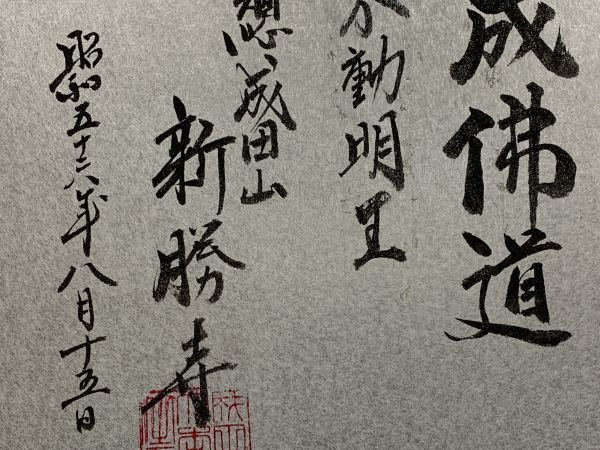 成佛道
不動明王
成田山
新勝寺
昭和五十六年八月十五日